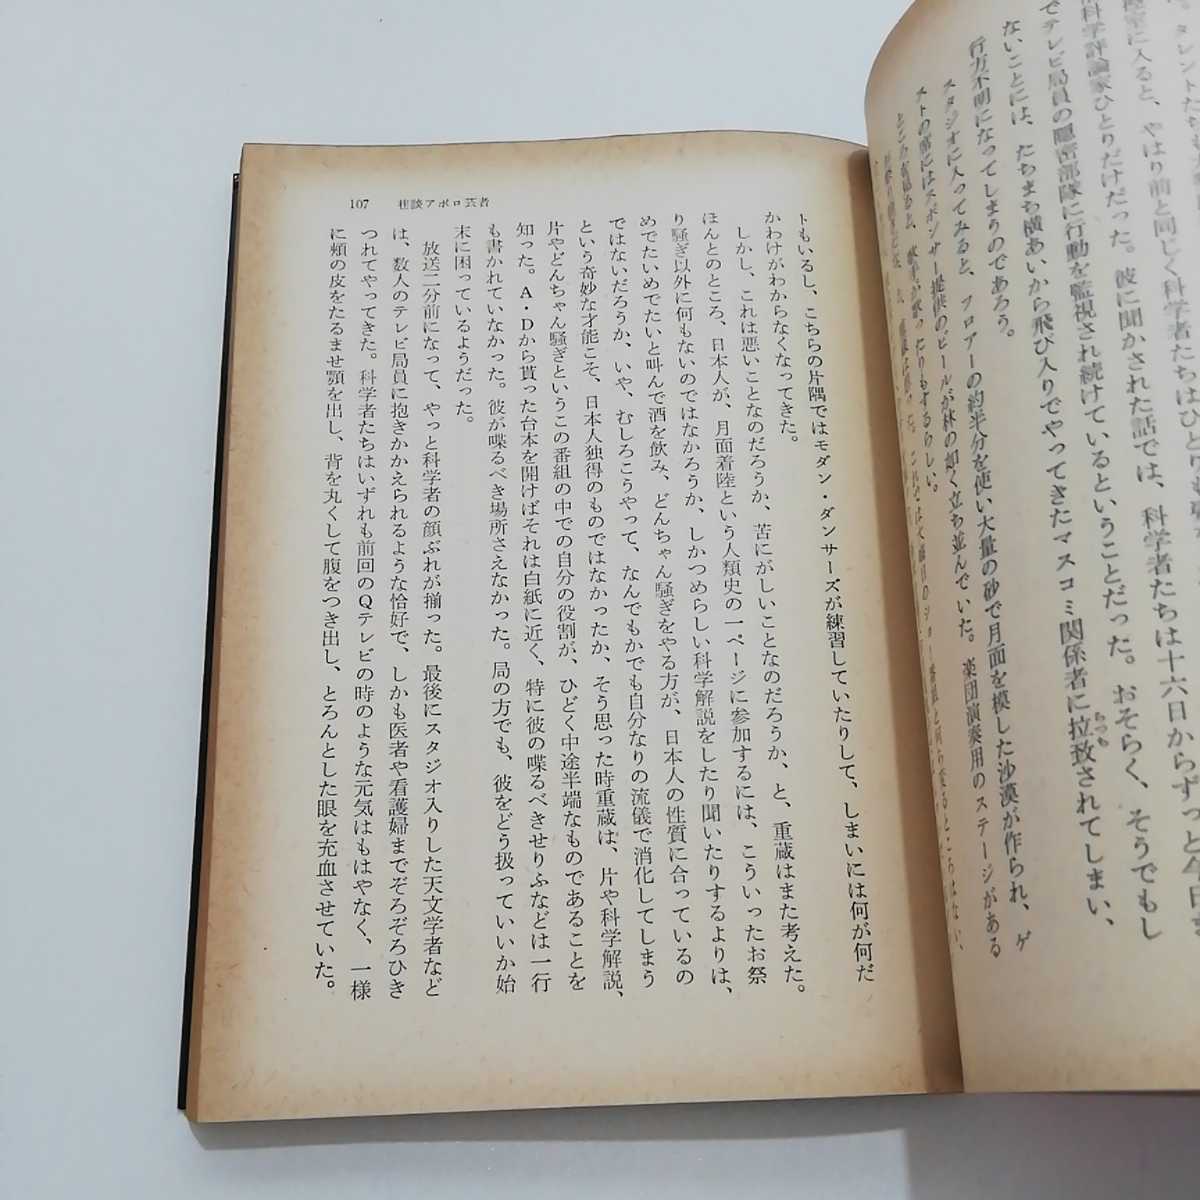 タレントたちも
控室に入ると、やはり前と同じく科学者たちはひとりも
科学評論家ひとりだけだった。彼に聞かされた話では、科学者たちは十六日からずっと今日
でテレビ局員の隠密部隊に行動を監視され続けているということだった。おそらく、そうでもし
ないことには、たちまち横あいから飛び入りでやってきたマスコミ関係者に拉致されてしまい、
らっち
行方不明になってしまうのであろう。
スタジオに入ってみると、フロアーの約半分を使い大量の砂で月面を模した沙漠が作られ、ゲ
ストの席にはスポンサー提供のビールが林の如く立ち並んでいた。楽団演奏用のステージがある
トもいるし、こちらの片隅ではモダン・ダンサーズが練習していたりして、しまいには何が何だ
かわけがわからなくなってきた。
しかし、これは悪いことなのだろうか、苦にがしいことなのだろうか、と、重蔵はまた考えた。
ほんとのところ、日本人が、月面着陸という人類史の一ページに参加するには、こういったお祭
り騒ぎ以外に何もないのではなかろうか、しかつめらしい科学解説をしたり聞いたりするよりは、
めでたいめでたいと叫んで酒を飲み、どんちゃん騒ぎをやる方が、日本人の性質に合っているの
ではないだろうか、いや、むしろこうやって、なんでもかでも自分なりの流儀で消化してしまう
という奇妙な才能こそ、日本人独得のものではなかったか、そう思った時重蔵は、片や科学解説、
片やどんちゃん騒ぎというこの番組の中での自分の役割が、ひどく中途半端なものであることを
知った。A・Dから貰った台本を開けばそれは白紙に近く、特に彼の喋るべきせりふなどは一行
も書かれていなかった。彼が喋るべき場所さえなかった。局の方でも、彼をどう扱っていいか始
末に困っているようだった。
放送二分前になって、やっと科学者の顔ぶれが揃った。最後にスタジオ入りした天文学者など
は、数人のテレビ局員に抱きかかえられるような恰好で、しかも医者や看護婦までぞろぞろひき
つれてやってきた。科学者たちはいずれも前回のQテレビの時のような元気はもはやなく、一様
に頬の皮をたるませ顎を出し、背を丸くして腹をつき出し、とろんとした眼を充血させていた。
107 壮談アポロ芸者